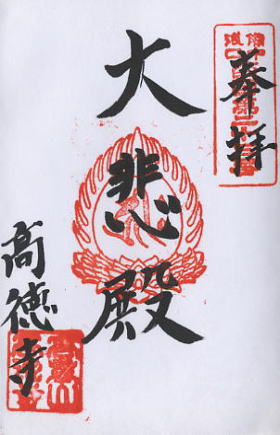 奉拝
大悲殿
高徳寺